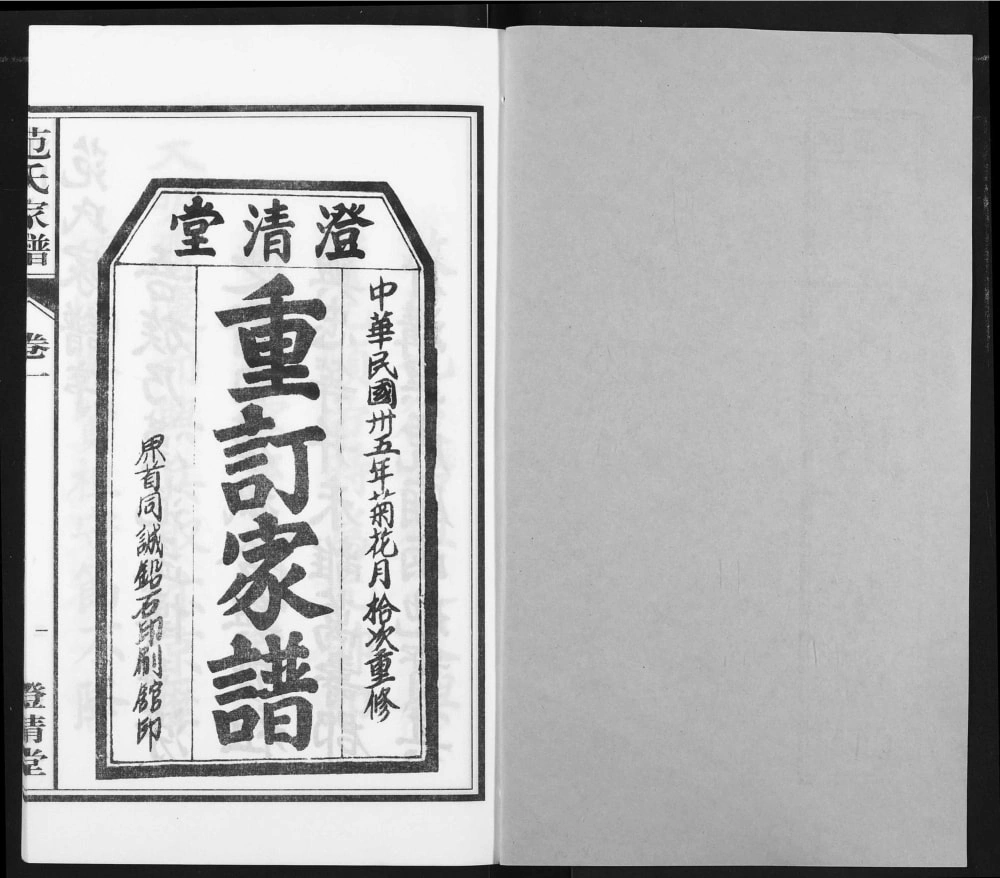 澄清堂
中華民國卅五年菊花月拾次重修
重訂家譜
同誠鉛石印刷館印
范氏家譜
卷一
一
澄清堂